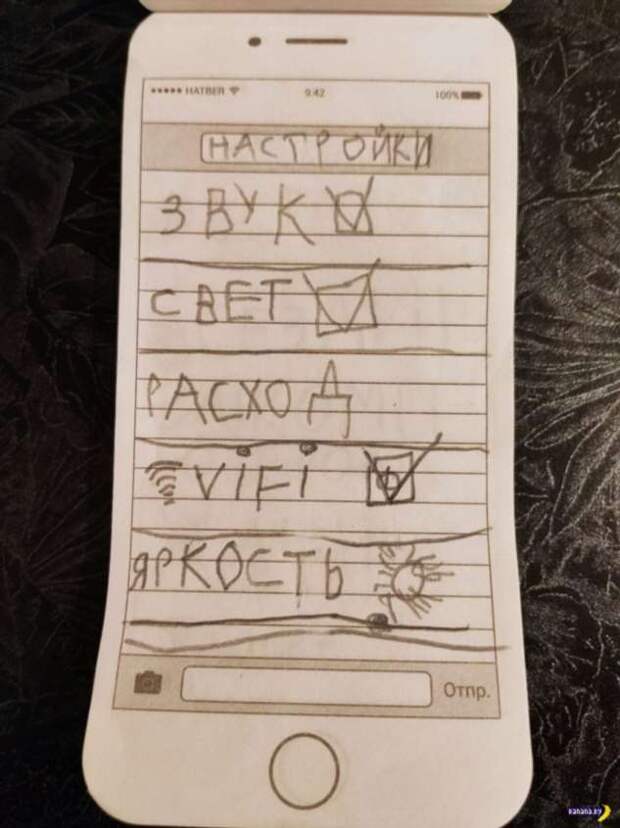 HATBER 9:42 100%
НАСТРОЙКИ
ЗВУК
СВЕТ
РАСХОД
VIFI
ЯРКОСТЬ
Отпр.
kanana.by